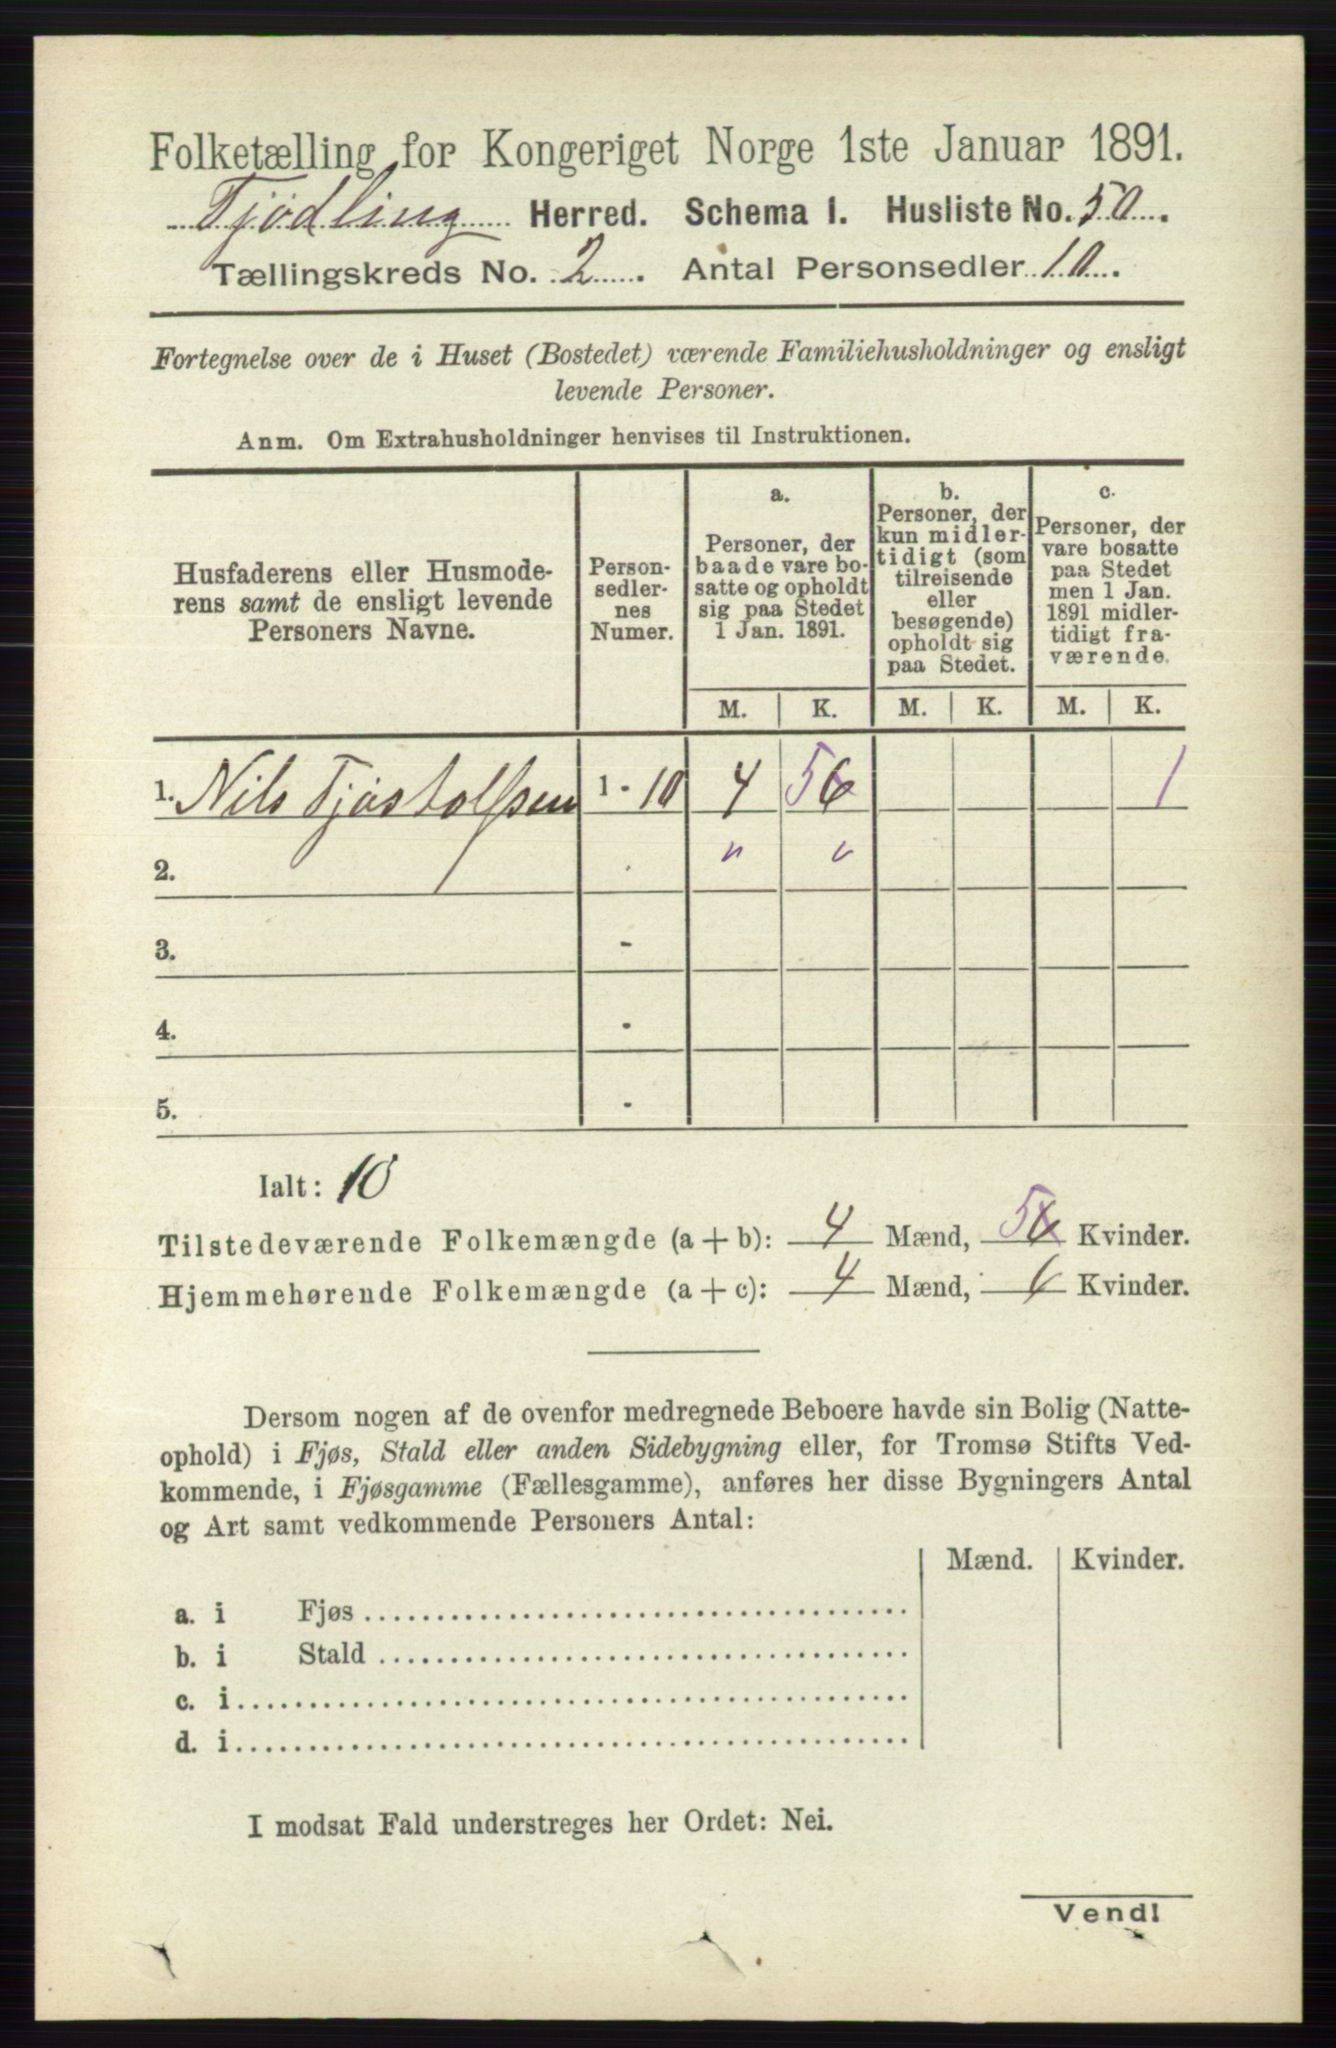 Folketælling for Kongeriget Norge 1ste Januar 1891.
Tjødling Herred. Schema I. Husliste No. 50.
Tællingskreds No. 2. Antal Personsedler 10.
Fortegnelse over de i Huset (Bostedet) værende Familiehusholdninger og ensligt
levende Personer.
Anm. Om Extrahusholdninger henvises til Instruktionen.
Husfaderens eller Husmode-
rens samt de ensligt levende
Personers Navne.
Person-
sedler-
nes
Numer.
a.
Personer, der
baade vare bo-
satte og opholdt
sig paa Stedet
1 Jan. 1891.
b.
Personer, der
kun midler-
tidigt (som
tilreisende
eller
besøgende)
opholdt sig
paa Stedet.
c.
Personer, der
vare bosatte
paa Stedet
men 1 Jan.
1891 midler-
tidigt fra-
værende.
M. K. M. K. M. K.
1. Nils Tjøstolfsen 1 - 10 4 5 6 1
2. - " "
3. -
4. -
5. -
Ialt: 10
Tilstedeværende Folkemængde (a + b): 4 Mænd, 5 6 Kvinder.
Hjemmehørende Folkemængde (a + c): 4 Mænd, 6 Kvinder.
Dersom nogen af de ovenfor medregnede Beboere havde sin Bolig (Natte-
ophold) i Fjøs, Stald eller anden Sidebygning eller, for Tromsø Stifts Ved-
kommende, i Fjøsgamme (Fællesgamme), anføres her disse Bygningers Antal
og Art samt vedkommende Personers Antal:
Mænd. Kvinder.
a. i Fjøs
b. i Stald
c. i
d. i
I modsat Fald understreges her Ordet: Nei.
Vend!